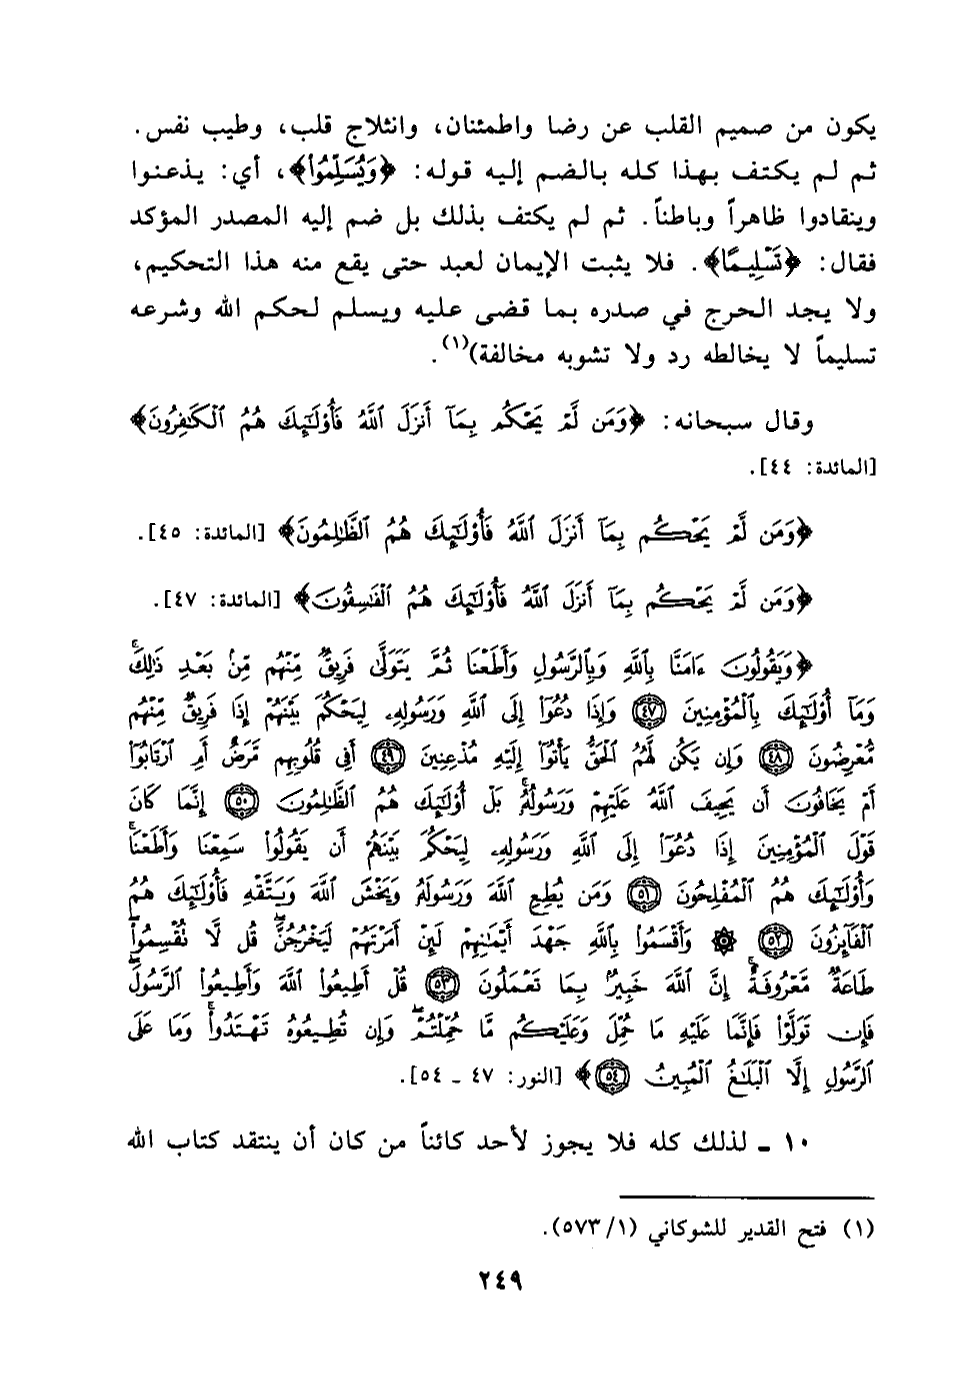 يكون من صميم القلب عن رضا واطمئنان، وانثلاج قلب، وطيب نفس.
ثم لم يكتف بهذا كله بالضم إليه قوله: ﴿وَيُسَلِّمُوا۟﴾، أي: يذعنوا
وينقادوا ظاهراً وباطناً. ثم لم يكتف بذلك بل ضم إليه المصدر المؤكد
فقال: ﴿تَسْلِيمًا﴾. فلا يثبت الإيمان لعبد حتى يقع منه هذا التحكيم،
ولا يجد الحرج في صدره بما قضى عليه ويسلم لحكم الله وشرعه
تسليماً لا يخالطه رد ولا تشوبه مخالفة)(١).
وقال سبحانه: ﴿وَمَن لَّمْ يَحْكُم بِمَآ أَنزَلَ ٱللَّهُ فَأُو۟لَـٰٓئِكَ هُمُ ٱلْكَـٰفِرُونَ﴾
[المائدة: ٤٤].
﴿وَمَن لَّمْ يَحْكُم بِمَآ أَنزَلَ ٱللَّهُ فَأُو۟لَـٰٓئِكَ هُمُ ٱلظَّـٰلِمُونَ﴾ [المائدة: ٤٥].
﴿وَمَن لَّمْ يَحْكُم بِمَآ أَنزَلَ ٱللَّهُ فَأُو۟لَـٰٓئِكَ هُمُ ٱلْفَـٰسِقُونَ﴾ [المائدة: ٤٧].
﴿وَيَقُولُونَ ءَامَنَّا بِٱللَّهِ وَبِٱلرَّسُولِ وَأَطَعْنَا ثُمَّ يَتَوَلَّىٰ فَرِيقٌ مِّنْهُم مِّنۢ بَعْدِ ذَٰلِكَ ۚ
وَمَآ أُو۟لَـٰٓئِكَ بِٱلْمُؤْمِنِينَ ٤٧ وَإِذَا دُعُوٓا۟ إِلَى ٱللَّهِ وَرَسُولِهِۦ لِيَحْكُمَ بَيْنَهُمْ إِذَا فَرِيقٌ مِّنْهُم
مُّعْرِضُونَ ٤٨ وَإِن يَكُن لَّهُمُ ٱلْحَقُّ يَأْتُوٓا۟ إِلَيْهِ مُذْعِنِينَ ٤٩ أَفِى قُلُوبِهِم مَّرَضٌ أَمِ ٱرْتَابُوٓا۟
أَمْ يَخَافُونَ أَن يَحِيفَ ٱللَّهُ عَلَيْهِمْ وَرَسُولُهُۥ ۚ بَلْ أُو۟لَـٰٓئِكَ هُمُ ٱلظَّـٰلِمُونَ ٥٠ إِنَّمَا كَانَ
قَوْلَ ٱلْمُؤْمِنِينَ إِذَا دُعُوٓا۟ إِلَى ٱللَّهِ وَرَسُولِهِۦ لِيَحْكُمَ بَيْنَهُمْ أَن يَقُولُوا۟ سَمِعْنَا وَأَطَعْنَا ۚ
وَأُو۟لَـٰٓئِكَ هُمُ ٱلْمُفْلِحُونَ ٥١ وَمَن يُطِعِ ٱللَّهَ وَرَسُولَهُۥ وَيَخْشَ ٱللَّهَ وَيَتَّقْهِ فَأُو۟لَـٰٓئِكَ هُمُ
ٱلْفَآئِزُونَ ٥٢ ۞ وَأَقْسَمُوا۟ بِٱللَّهِ جَهْدَ أَيْمَـٰنِهِمْ لَئِنْ أَمَرْتَهُمْ لَيَخْرُجُنَّ ۖ قُل لَّا تُقْسِمُوا۟ ۖ
طَاعَةٌ مَّعْرُوفَةٌ ۚ إِنَّ ٱللَّهَ خَبِيرٌۢ بِمَا تَعْمَلُونَ ٥٣ قُلْ أَطِيعُوا۟ ٱللَّهَ وَأَطِيعُوا۟ ٱلرَّسُولَ ۖ
فَإِن تَوَلَّوْا۟ فَإِنَّمَا عَلَيْهِ مَا حُمِّلَ وَعَلَيْكُم مَّا حُمِّلْتُمْ ۖ وَإِن تُطِيعُوهُ تَهْتَدُوا۟ ۚ وَمَا عَلَى
ٱلرَّسُولِ إِلَّا ٱلْبَلَـٰغُ ٱلْمُبِينُ ٥٤﴾ [النور: ٤٧ ـ ٥٤].
١٠ ـ لذلك كله فلا يجوز لأحد كائناً من كان أن ينتقد كتاب الله
(١) فتح القدير للشوكاني (١/ ٥٧٣).
٢٤٩